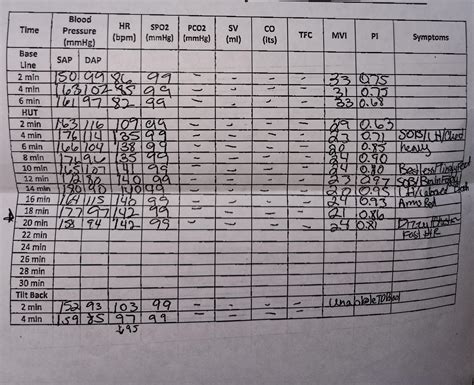 Time Blood Pressure (mmHg) HR (bpm) SPO2 (mmHg) PCO2 (mmHg) SV (ml) CO (lts) TFC MVI PI Symptoms
Base Line SAP DAP
2 min 150 99 86 99 - - - - 33 0.75
4 min 163 102 85 99 - - - - 31 0.75
6 min 161 97 82 99 - - - - 33 0.68
HUT
2 min 163 116 109 99 - - - - 29 0.63
4 min 176 114 135 99 - - - - 27 0.71 SOB/LH/Chest
6 min 166 104 138 99 - - - - 20 0.85 heavy
8 min 176 96 135 99 - - - - 24 0.90
10 min 165 107 141 99 - - - - 24 0.80
12 min 80 140 99 - - - - 23 0.97 SOB/Brain
14 min 90 140 99 - - - - 20 0.95
16 min 164 115 140 99 - - - - 24 0.93 Arms Red
18 min 177 97 142 99 - - - - 21 0.86
20 min 158 94 142 99 - - - - 24 0.81
Fast HR
22 min
24 min
26 min
28 min
30 min
Tilt Back
2 min 152 93 103 99 - - - - Unable to
4 min 159 85 97 99 - - - -
↓95